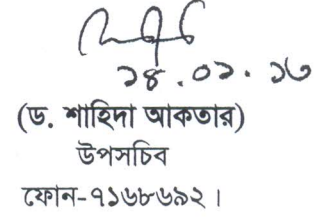 ১৪.০১.১৩
(ড. শাহিদা আকতার)
উপসচিব
ফোন-৭১৬৮৬৯২।